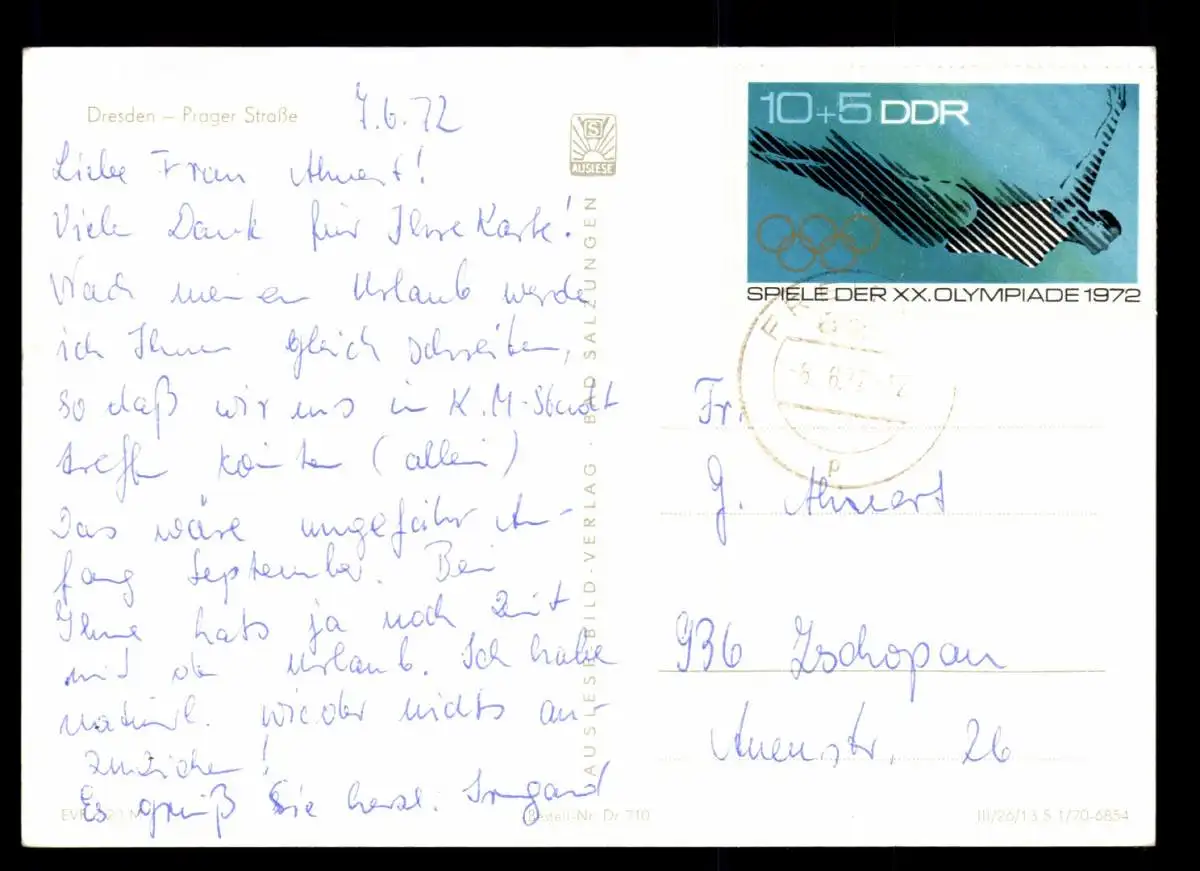 Dresden – Prager Straße
7.6.72
Liebe Frau Ahnert!
Viele Dank für Ihre Karte!
Nach meinen Urlaub werde
ich Ihnen gleich schreiben,
so daß wir uns in K.M-Stadt
treffen könnten (allein)
Das wäre ungefähr An-
fang September. Bei
Ihnen hats ja noch Zeit
mit dem Urlaub. Ich habe
natürl. wieder nichts an-
zuziehen!
Es grüß Sie herzl. Irmgard
S
AUSLESE
AUSLESE-BILD-VERLAG · BAD SALZUNGEN
Bestell-Nr. Dr 710
10+5 DDR
SPIELE DER XX. OLYMPIADE 1972
-6. 6.72-12
Fr.
G. Ahnert
936 Zschopau
Auenstr. 26
III/26/13 S 1/70-6854